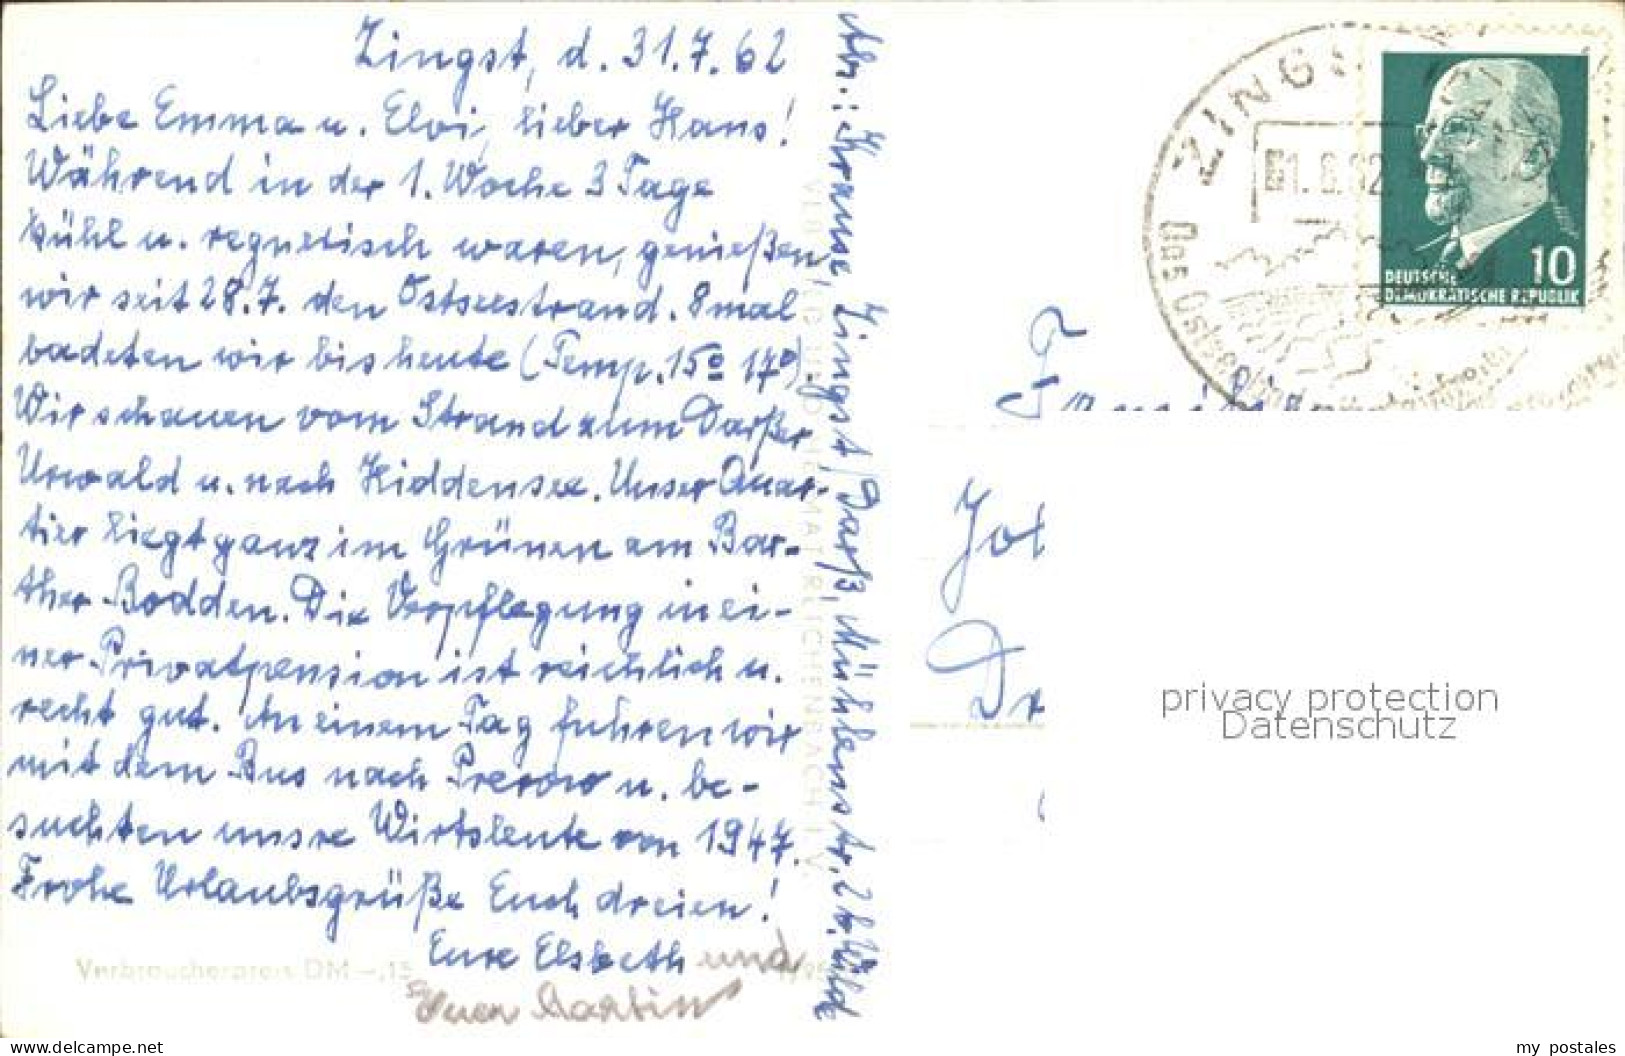 Zingst, d. 31.7.62
Liebe Emma u. Elvi, lieber Hans!
Während in der 1. Woche 3 Tage
kühl u. regnerisch waren, genießen
wir seit 28.7. den Ostseestrand. 8 mal
badeten wir bis heute (Temp. 15º 17º).
Wir schauen vom Strand zum Darßer
Urwald u. nach Hiddensee. Unser Quar-
tier liegt ganz im Grünen am Bar-
ther Bodden. Die Verpflegung in ei-
ner Privatpension ist reichlich u.
recht gut. An einem Tag fuhren wir
mit dem Bus nach Prerow u. be-
suchten unsre Wirtsleute von 1947.
Frohe Urlaubsgrüße Euch dreien!
Eure Elsbeth und
Euer Martin
Verbraucherpreis DM -,15
Abr.: Krause, Zingst/Darß, Mühlenstr. 2 b. Wilde
ZINGST
Das Ostseebad
DEUTSCHE
DEMOKRATISCHE REPUBLIK
10
Familie
Joh
Dr
privacy protection
Datenschutz
www.delcampe.net
my postales